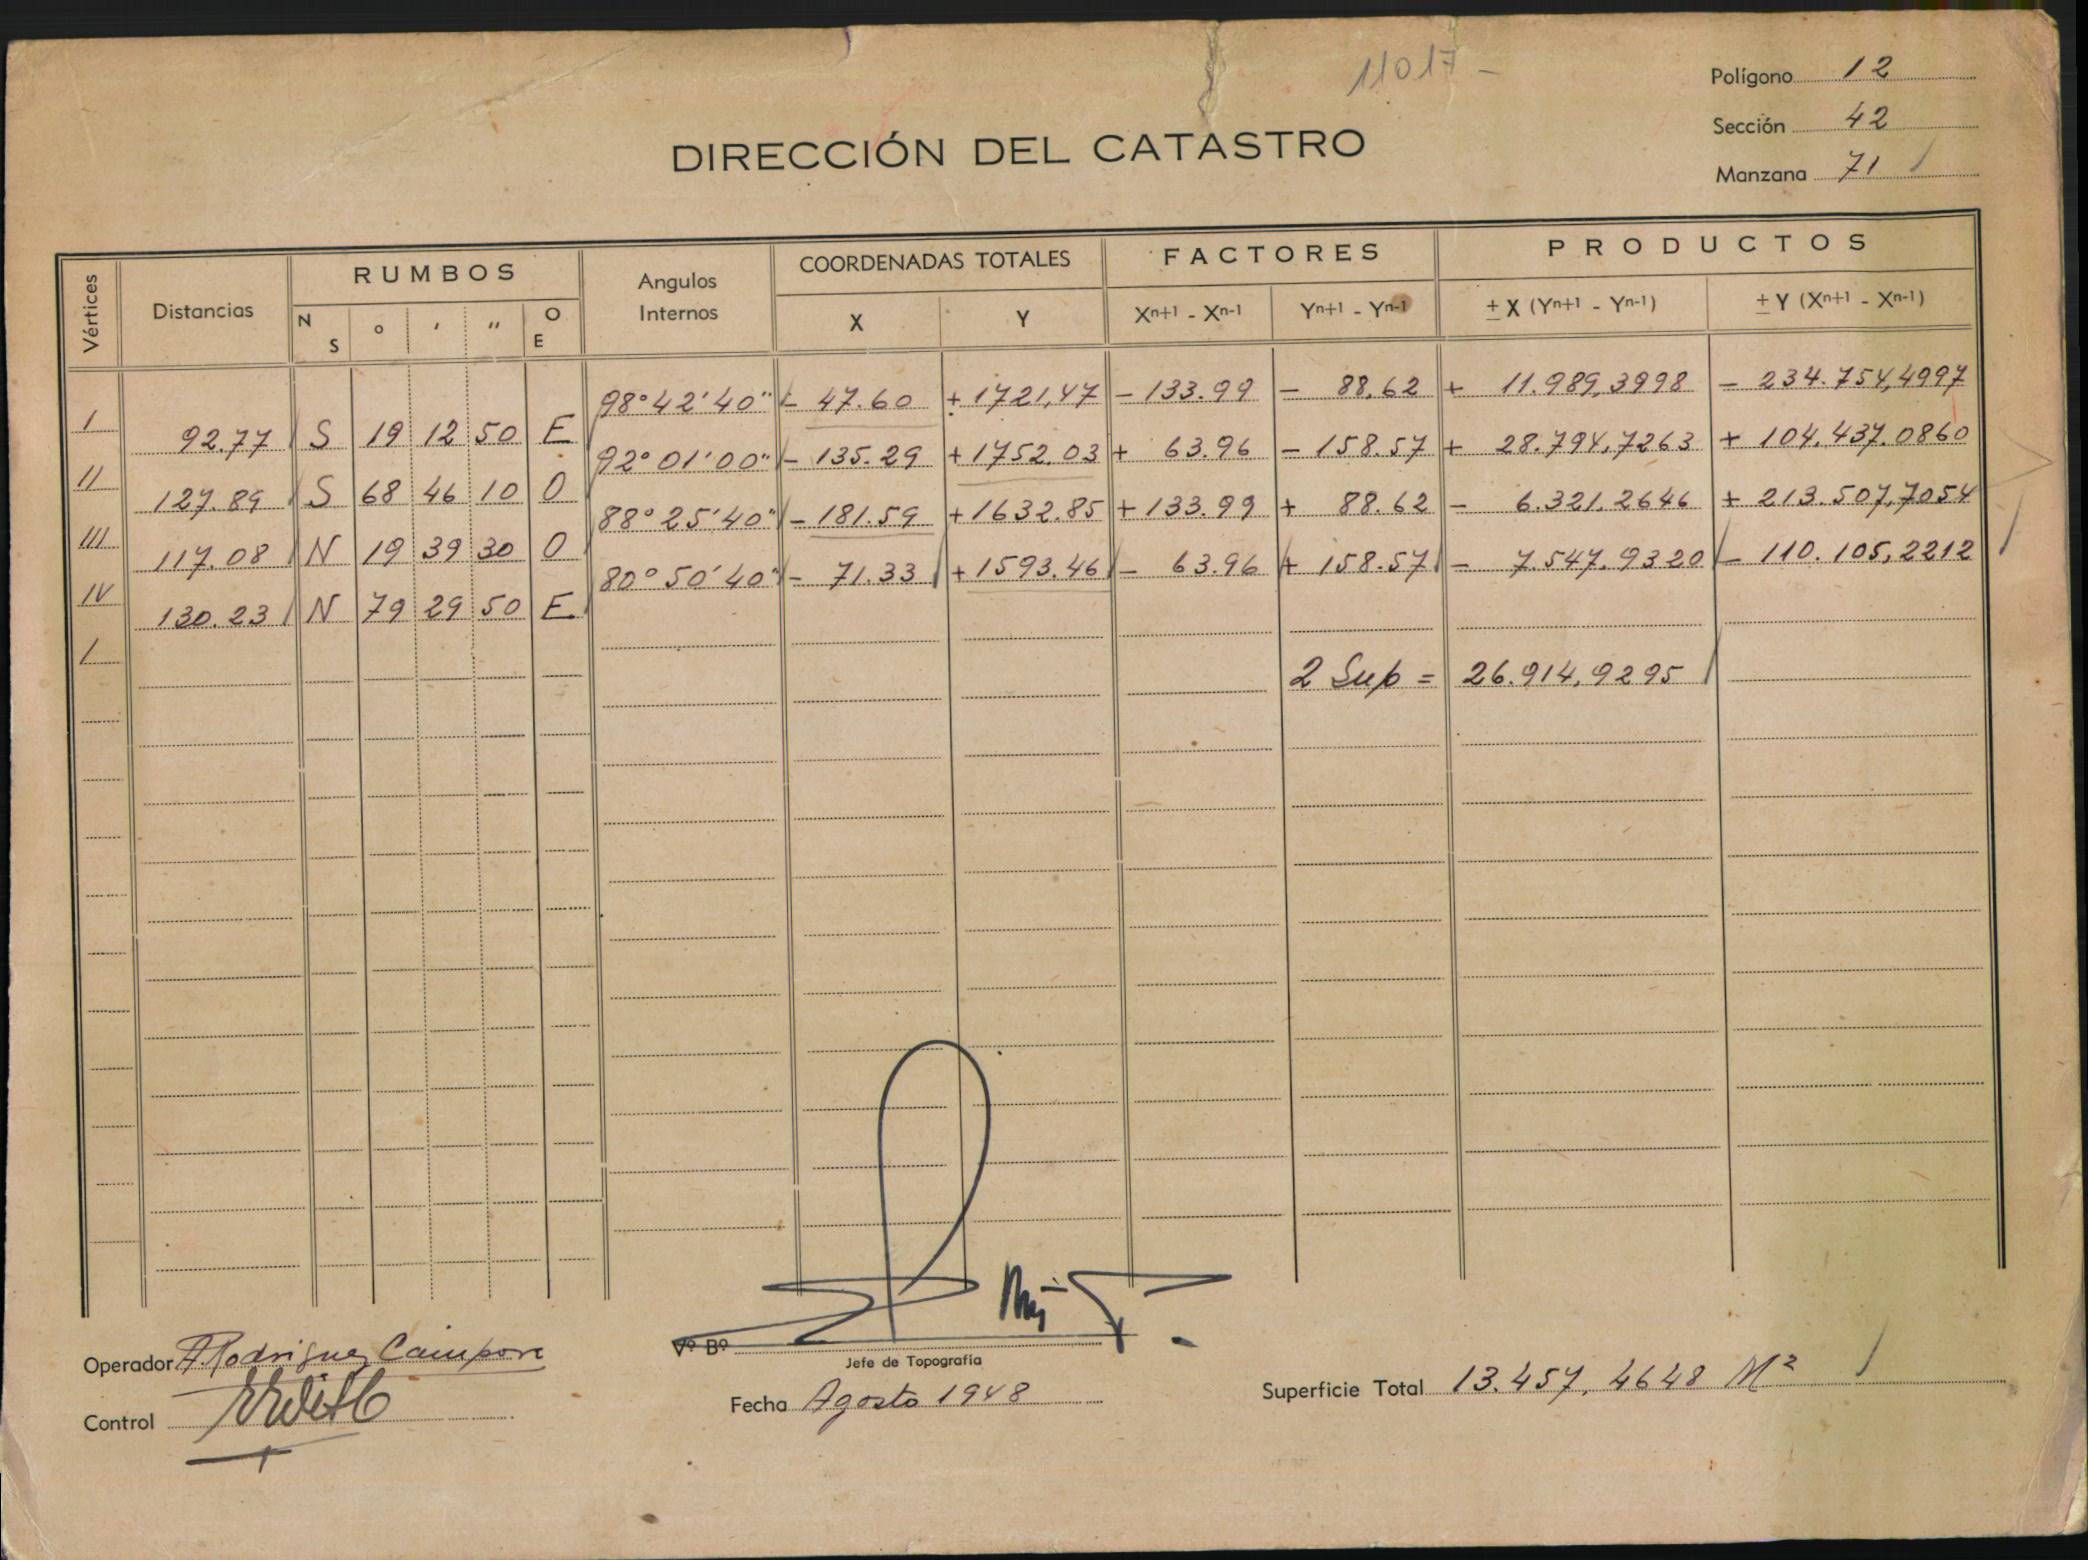 11017 -
Polígono 12
Sección 42
Manzana 71
DIRECCIÓN DEL CATASTRO
Vértices Distancias RUMBOS Angulos Internos COORDENADAS TOTALES FACTORES PRODUCTOS
N S ° ' " O E X Y Xn+1 - Xn-1 Yn+1 - Yn-1 ± X (Yn+1 - Yn-1) ± Y (Xn+1 - Xn-1)
98° 42' 40" - 47.60 + 1721,47 - 133.99 - 88.62 + 11.989,3998 - 234.754,4997
I 92.77 S 19 12 50 E
92° 01' 00" - 135.29 + 1752.03 + 63.96 - 158.57 + 28.794,7263 + 104.437.0860
II 127.89 S 68 46 10 O
88° 25' 40" - 181.59 + 1632.85 + 133.99 + 88.62 - 6.321.2646 + 213.507,7054
III 117.08 N 19 39 30 O
80° 50' 40" - 71.33 + 1593.46 - 63.96 + 158.57 - 7.547.9320 - 110.105,2212
IV 130.23 N 79 29 50 E
I
2 Sup = 26.914,9295
Operador A. Rodriguez
Control
Vº Bº
Jefe de Topografía
Fecha Agosto 1948
Superficie Total 13.457,4648 M²